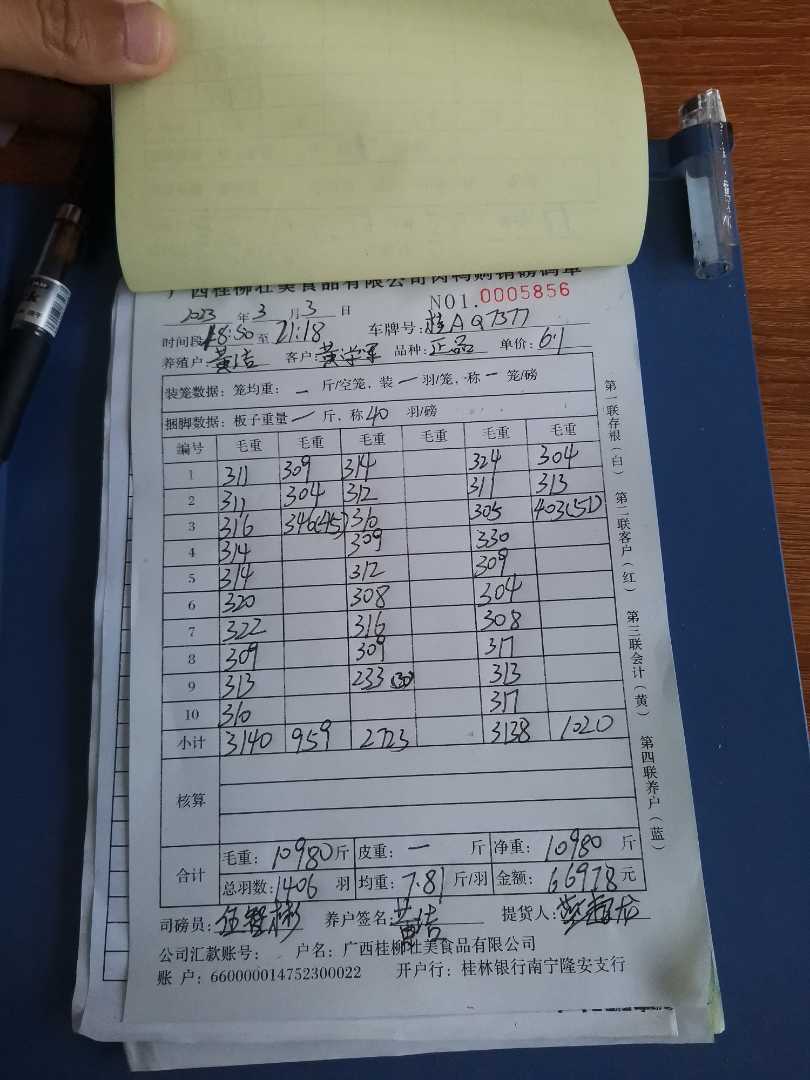 广西桂柳壮美食品有限公司肉鸭购销磅码单
NO1.0005856
2023年3月3日
时间段18:50至21:18 车牌号:桂AQ7577
养殖户:黄洁 客户:黄学军 品种:正品 单价:6.1
装笼数据:笼均重:一斤/空笼,装一羽/笼,称一笼/磅
捆脚数据:板子重量一斤,称40羽/磅
编号 毛重 毛重 毛重 毛重 毛重 毛重
1 311 309 314 324 304
2 311 304 312 311 313
3 316 346(45) 310 305 403(51)
4 314 309 330
5 314 312 309
6 320 308 304
7 322 316 308
8 309 309 317
9 313 233(30) 313
10 310 317
小计 3140 959 2723 3138 1020
核算
合计 毛重:10980斤 皮重:一斤 净重:10980斤
总羽数:1406羽 均重:7.81斤/羽 金额:66978元
司磅员: 养户签名:黄洁 提货人:
公司汇款账号: 户名:广西桂柳壮美食品有限公司
账户:660000014752300022 开户行:桂林银行南宁隆安支行
第一联存根(白) 第二联客户(红) 第三联会计(黄) 第四联养户(蓝)